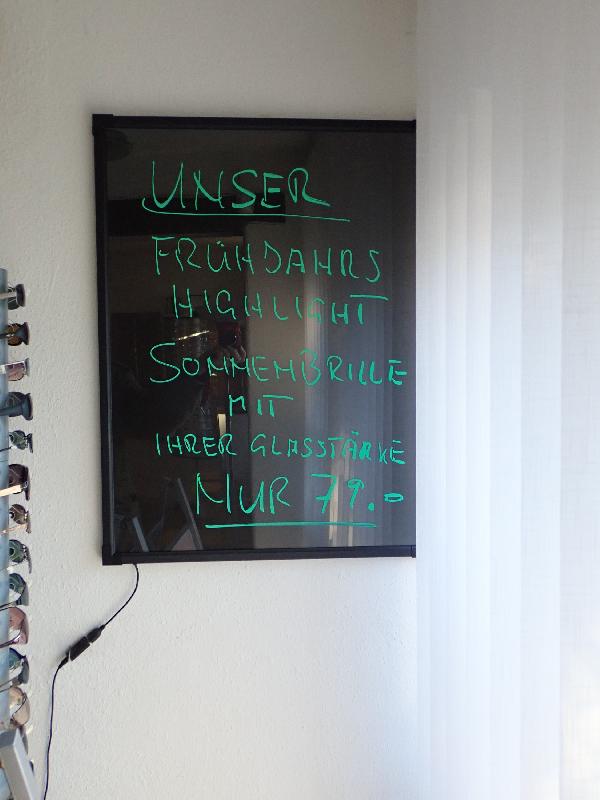 UNSER
FRÜHJAHRS
HIGHLIGHT
SONNENBRILLE
MIT
IHRER GLASSTÄRKE
NUR 79.-